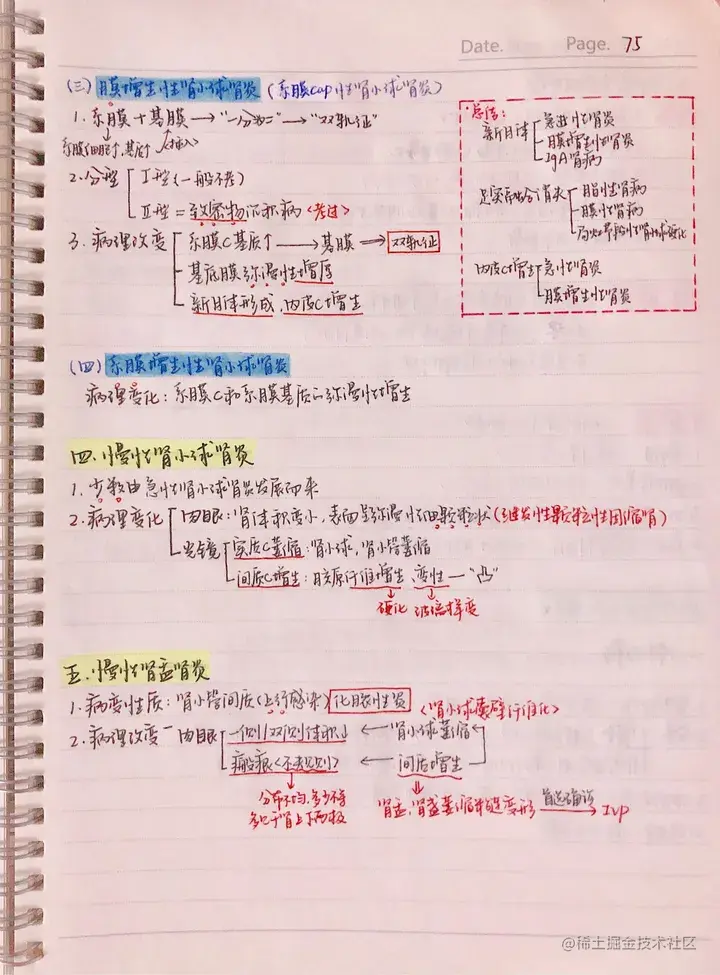 Date. Page. 75
(三) 膜增生性肾小球肾炎 (系膜cap性肾小球肾炎)
1. 系膜+基膜 → "一分为二" → "双轨征"
系膜细胞↑, 基质↑ 插入
2. 分型 I型(一般不考)
II型 = 致密物沉积病 <考过>
3. 病理改变 系膜C基质↑ → 基膜 → 双轨征
基底膜弥漫性增厚
新月体形成, 内皮C增生
总结:
新月体 急进性肾炎
膜增生性肾炎
IgA肾病
足突融合消失 脂性肾病
膜性肾病
局灶节段性肾小球硬化
内皮C增生 急性肾炎
膜增生性肾炎
(四) 系膜增生性肾小球肾炎
病理变化: 系膜C和系膜基质的弥漫性增生
四. 慢性肾小球肾炎
1. 少数由急性肾小球肾炎发展而来
2. 病理变化 肉眼: 肾体积变小, 表面呈弥漫性细颗粒状 (继发性颗粒性固缩肾)
光镜 实质C萎缩: 肾小球, 肾小管萎缩
间质C增生: 胶原纤维增生、变性 — "凸"
硬化 玻璃样变
五. 慢性肾盂肾炎
1. 病变性质: 肾小管间质(上行感染) 化脓性炎
<肾小球囊壁纤维化>
2. 病理改变 — 肉眼 一侧/双侧体积↓ ← 肾小球萎缩
瘢痕<不规则> ← 间质增生
分布不均, 多少不等
多见于肾上下两极
肾盂, 肾盏萎缩和变形 首选确诊 → IVP
@稀土掘金技术社区